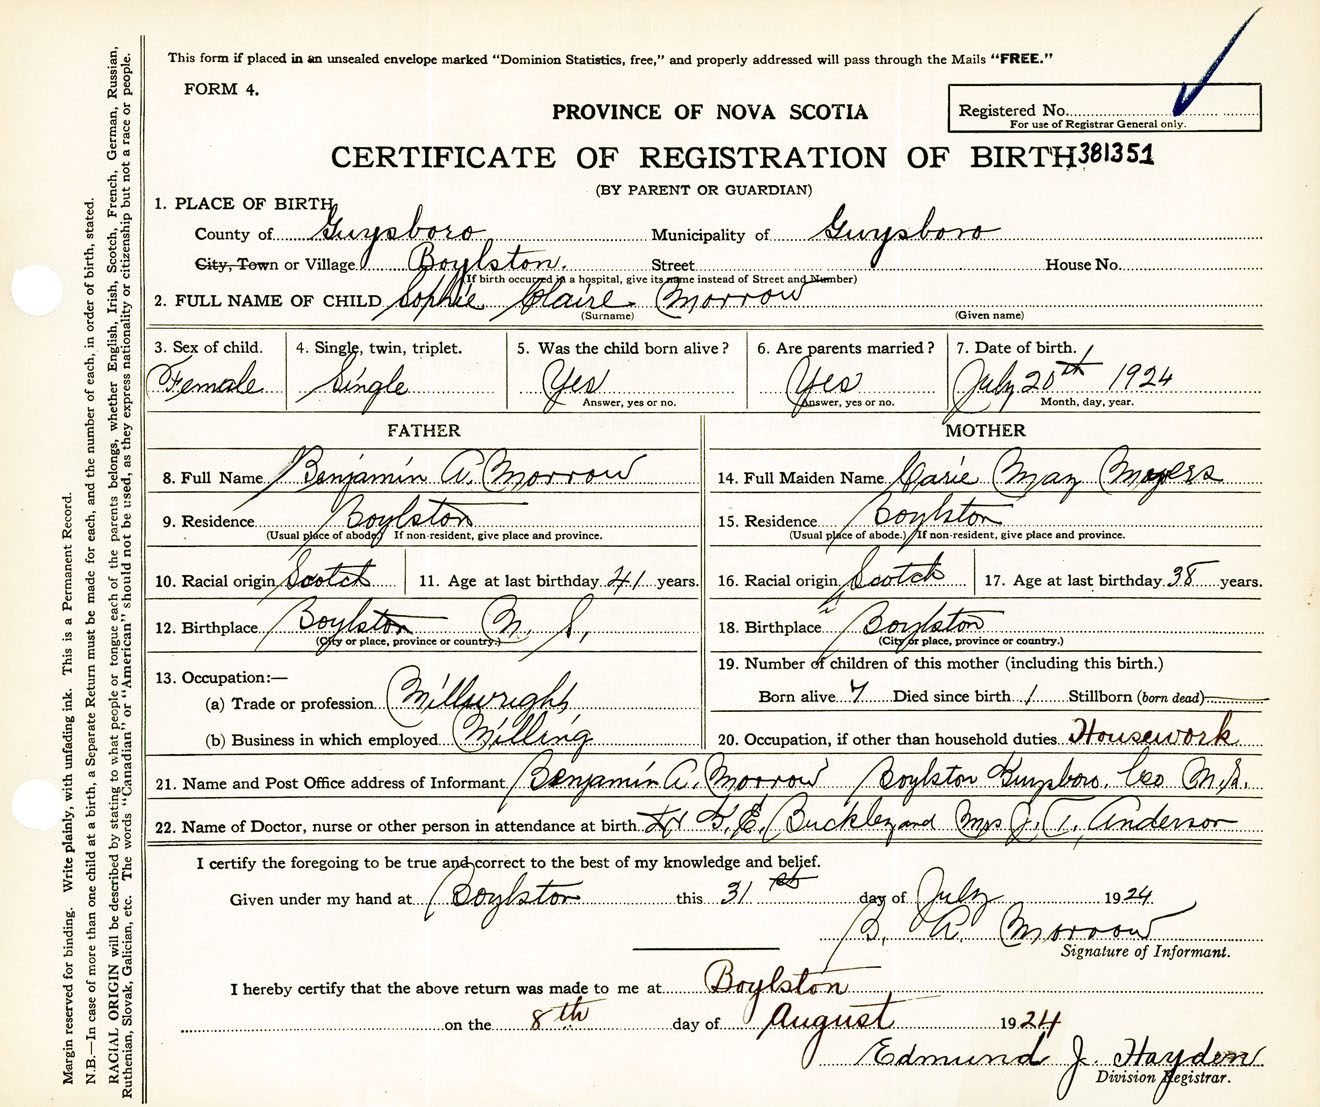 This form if placed in an unsealed envelope marked “Dominion Statistics, free,” and properly addressed will pass through the Mails “FREE.”
FORM 4.
PROVINCE OF NOVA SCOTIA
Registered No.
For use of Registrar General only.
CERTIFICATE OF REGISTRATION OF BIRTH 381351
(BY PARENT OR GUARDIAN)
1. PLACE OF BIRTH
County of Guysboro Municipality of Guysboro
City, Town or Village Boylston. Street House No.
(If birth occurred in a hospital, give its name instead of Street and Number)
2. FULL NAME OF CHILD Sophie Claire Morrow
(Surname) (Given name)
3. Sex of child. 4. Single, twin, triplet. 5. Was the child born alive? 6. Are parents married? 7. Date of birth.
Female Single Yes Yes July 20th 1924
Answer, yes or no. Answer, yes or no. Month, day, year.
FATHER MOTHER
8. Full Name Benjamin A. Morrow 14. Full Maiden Name Carie May Meyers
9. Residence Boylston 15. Residence Boylston
(Usual place of abode.) If non-resident, give place and province. (Usual place of abode.) If non-resident, give place and province.
10. Racial origin Scotch 11. Age at last birthday 41 years. 16. Racial origin Scotch 17. Age at last birthday 38 years.
12. Birthplace Boylston N. S. 18. Birthplace Boylston
(City or place, province or country.) (City or place, province or country.)
13. Occupation:— 19. Number of children of this mother (including this birth.)
(a) Trade or profession Millwright Born alive 7 Died since birth 1 Stillborn (born dead)
(b) Business in which employed Milling 20. Occupation, if other than household duties Housework
21. Name and Post Office address of Informant Benjamin A. Morrow Boylston Guysboro, Co N.S.
22. Name of Doctor, nurse or other person in attendance at birth Dr G. E. Buckley and Mrs J. T. Anderson
I certify the foregoing to be true and correct to the best of my knowledge and belief.
Given under my hand at Boylston this 31 st day of July 1924.
B. A. Morrow
Signature of Informant.
I hereby certify that the above return was made to me at Boylston
on the 8th day of August 1924
Edmund J. Hayden
Division Registrar.
Margin reserved for binding. Write plainly, with unfading ink. This is a Permanent Record.
N.B.—In case of more than one child at a birth, a Separate Return must be made for each, and the number of each, in order of birth, stated.
RACIAL ORIGIN will be described by stating to what people or tongue each of the parents belongs, whether English, Irish, Scotch, French, German, Russian,
Ruthenian, Slovak, Galician, etc. The words “Canadian” or “American” should not be used, as they express nationality or citizenship but not a race or people.